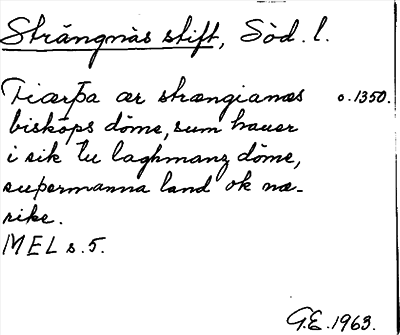 Strängnäs stift, Söd. l.
Fiærþa ær strængianæs o. 1350.
biskops döme, sum hauer
i sik tu laghmanz döme,
suþermanna land ok næ-
rike.
MEL s. 5.
G.E. 1963.